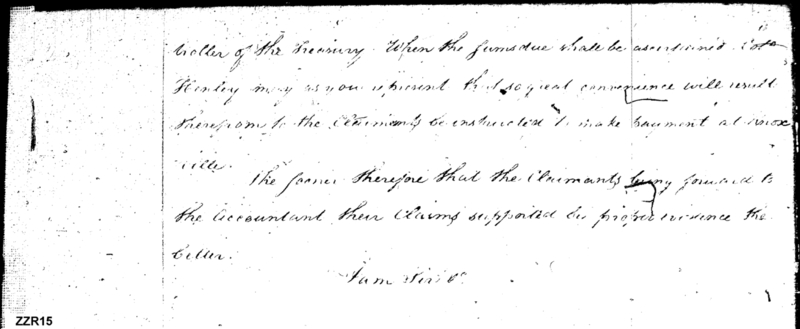 troller of the Treasury. When the sums due shall be ascertained Colo
Henley may as you represent that so great convenience will result
therefrom to the Claimants be instructed to make payment at Knox
ville.
The sooner therefore that the Claimants bring forward to
the Accountant their Claims supported by proper evidence the
better.
I am Sir &c
ZZR15